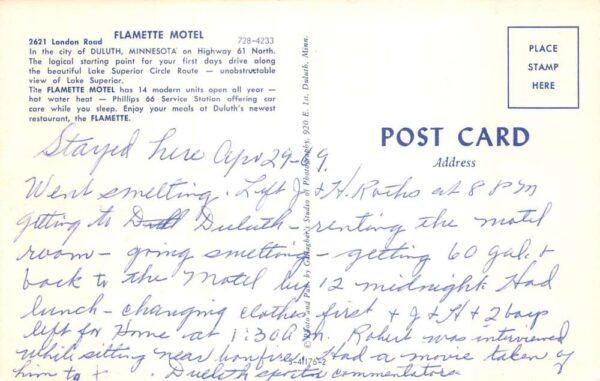 FLAMETTE MOTEL
2621 London Road 728-4233
In the city of DULUTH, MINNESOTA on Highway 61 North.
The logical starting point for your first days drive along
the beautiful Lake Superior Circle Route — unobstructable
view of Lake Superior.
The FLAMETTE MOTEL has 14 modern units open all year —
hot water heat — Phillips 66 Service Station offering car
care while you sleep. Enjoy your meals at Duluth's newest
restaurant, the FLAMETTE.
Photo and Pub. by Gallagher's Studio of Photography, 920 E. 1st, Duluth, Minn.
PLACE
STAMP
HERE
POST CARD
Address
Stayed here Apr 29-69.
Went smelting. Left J & H. Roths at 8 PM
getting to Duluth - renting the motel
room - going smelting - getting 60 gal. &
back to the Motel by 12 midnight. Had
lunch - changing clothes first & J & H & 2 boys
left for home at 1:30 A.M. Robert was interviewed
while sitting near bonfire. Had a movie taken of
him to. Duluth sports commentators